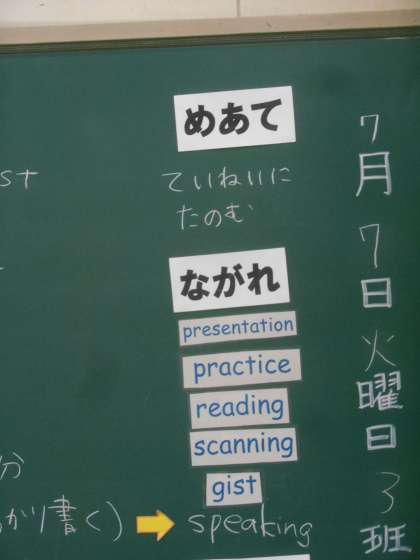 7月7日火曜日3班
めあて
ていねいに
たのむ
ながれ
presentation
practice
reading
scanning
gist
speaking
st
分
かり書く)